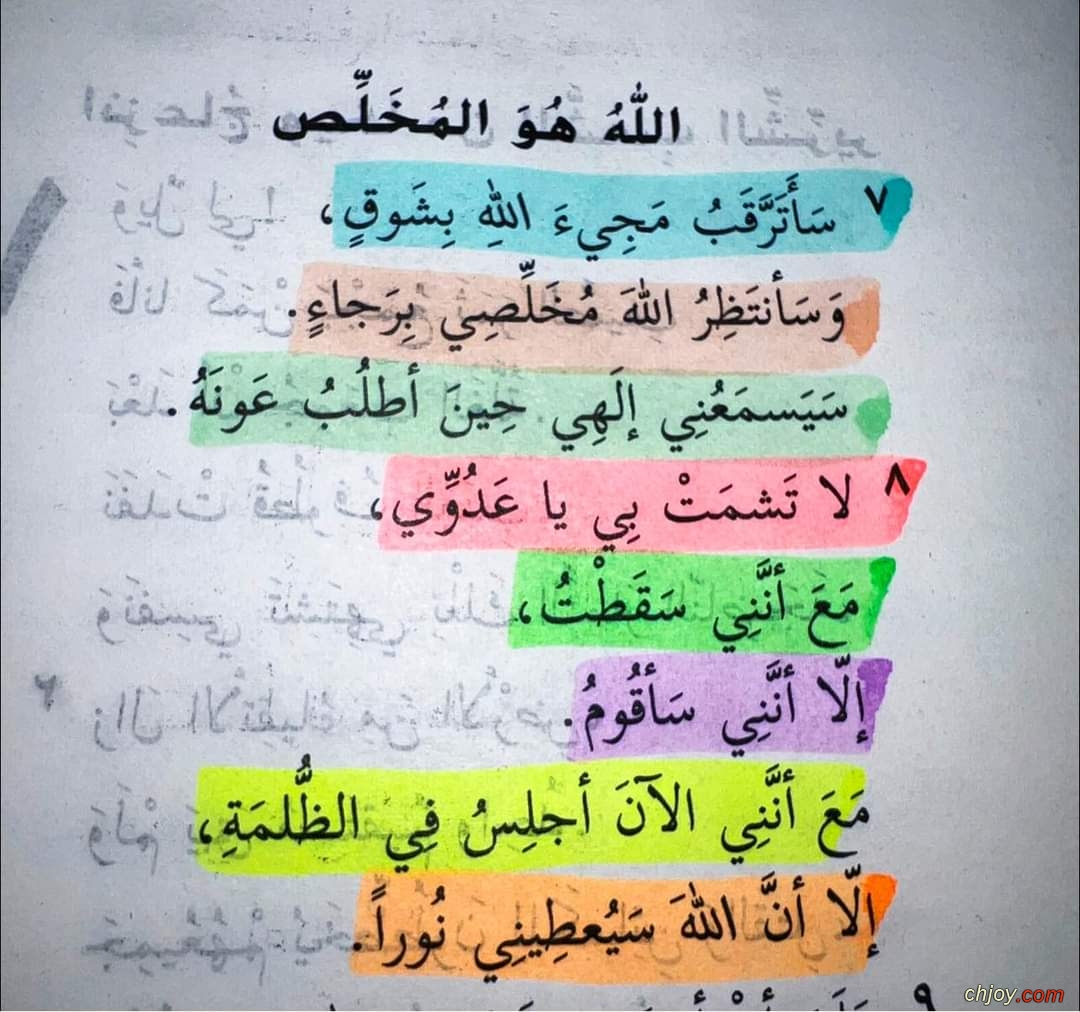 اللهُ هُوَ المُخَلِّص
٧ سَأَتَرَّقَبُ مَجِيءَ اللهِ بِشَوقٍ،
وَسَأنتَظِرُ اللهَ مُخَلِّصِي بِرَجاءٍ.
سَيَسمَعُنِي إلَهِي حِينَ أطلُبُ عَونَهُ.
٨ لا تَشمَتْ بِي يا عَدُوِّي،
مَعَ أنَّنِي سَقَطْتُ،
إلّا أنَّنِي سَأقُومُ.
مَعَ أنَّنِي الآنَ أجلِسُ فِي الظُّلمَةِ،
إلّا أنَّ اللهَ سَيُعطِينِي نُوراً.
٩
chjoy.com